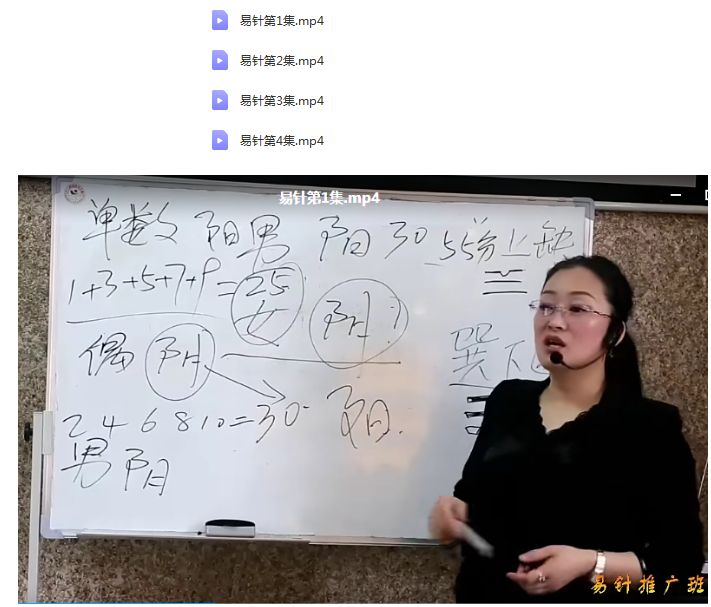 易针第1集.mp4
易针第2集.mp4
易针第3集.mp4
易针第4集.mp4
易针第1集.mp4
单数 阳男 阳 30 55 兑上缺
1+3+5+7+9=25
女 阴?
偶 阴
巽下
2 4 6 8 10=30 阳.
男 阴
易针推广班